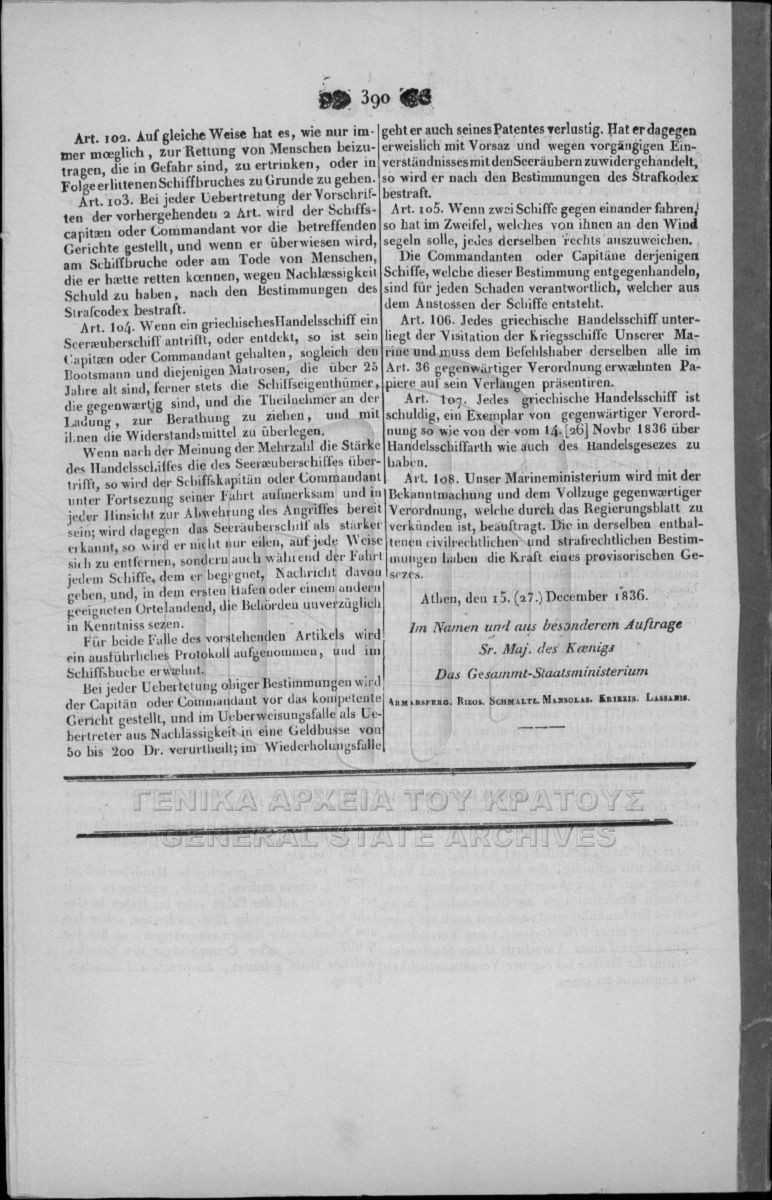 390
Art. 102. Auf gleiche Weise hat es, wie nur im-
mer mœglich, zur Rettung von Menschen beizu-
tragen, die in Gefahr sind, zu ertrinken, oder in
Folge erlittenen Schiffbruches zu Grunde zu gehen.
Art. 103. Bei jeder Uebertretung der Vorschrif-
ten der vorhergehenden 2 Art. wird der Schiffs-
capitæn oder Commandant vor die betreffenden
Gerichte gestellt, und wenn er überwiesen wird,
am Schiffbruche oder am Tode von Menschen,
die er hætte retten kœnnen, wegen Nachlæssigkeit
Schuld zu haben, nach den Bestimmungen des
Strafcodex bestraft.
Art. 104. Wenn ein griechisches Handelsschiff ein
Seeræuberschiff antrifft, oder entdekt, so ist sein
Capitæn oder Commandant gehalten, sogleich den
Bootsmann und diejenigen Matrosen, die über 25
Jahre alt sind, ferner stets die Schiffseigenthümer,
die gegenwærtig sind, und die Theilnehmer an der
Ladung, zur Berathung zu ziehen, und mit
ihnen die Widerstandsmittel zu überlegen.
Wenn nach der Meinung der Mehrzahl die Stärke
des Handelsschiffes die des Seeræuberschiffes über-
trifft, so wird der Schiffskapitän oder Commandant
unter Fortsezung seiner Fahrt aufmerksam und in
jeder Hinsicht zur Abwehrung des Angriffes bereit
sein; wird dagegen das Seeräuberschiff als stärker
erkannt, so wird er nicht nur eilen, auf jede Weise
sich zu entfernen, sondern auch während der Fahrt
jedem Schiffe, dem er begegnet, Nachricht davon
geben, und, in dem ersten Hafen oder einem andern
geeigneten Orte landend, die Behörden unverzüglich
in Kenntniss sezen.
Für beide Falle des vorstehenden Artikels wird
ein ausführliches Protokoll aufgenommen, und im
Schiffsbuche erwæhnt.
Bei jeder Uebertetung obiger Bestimmungen wird
der Capitän oder Commandant vor das kompetente
Gericht gestellt, und im Ueberweisungsfalle als Ue-
bertreter aus Nachlässigkeit in eine Geldbusse von
50 bis 200 Dr. verurtheilt; im Wiederholungsfalle
geht er auch seines Patentes verlustig. Hat er dagegen
erweislich mit Vorsaz und wegen vorgängigen Ein-
verständnisses mit den Seeräubern zuwidergehandelt,
so wird er nach den Bestimmungen des Strafkodex
bestraft.
Art. 105. Wenn zwei Schiffe gegen einander fahren,
so hat im Zweifel, welches von ihnen an den Wind
segeln solle, jedes derselben rechts auszuweichen.
Die Commandanten oder Capitäne derjenigen
Schiffe, welche dieser Bestimmung entgegenhandeln,
sind für jeden Schaden verantwortlich, welcher aus
dem Anstossen der Schiffe entsteht.
Art. 106. Jedes griechische Handelsschiff unter-
liegt der Visitation der Kriegsschiffe Unserer Ma-
rine und muss dem Befehlshaber derselben alle im
Art. 36 gegenwärtiger Verordnung erwæhnten Pa-
piere auf sein Verlangen präsentiren.
Art. 107. Jedes griechische Handelsschiff ist
schuldig, ein Exemplar von gegenwärtiger Verord-
nung so wie von der vom 14. [26] Novbr 1836 über
Handelsschiffarth wie auch des Handelsgesezes zu
haben.
Art. 108. Unser Marineministerium wird mit der
Bekanntmachung und dem Vollzuge gegenwærtiger
Verordnung, welche durch das Regierungsblatt zu
verkünden ist, beauftragt. Die in derselben enthal-
tenen civilrechtlichen und strafrechtlichen Bestim-
mungen haben die Kraft eines provisorischen Ge-
sezes.
Athen, den 15. (27.) December 1836.
Im Namen und aus besonderem Auftrage
Sr. Maj. des Kœnigs
Das Gesammt-Staatsministerium
ARMANSPERG. RIZOS. SCHMALTZ. MANSOLAS. KRIEZIS. LASSANIS.
ΓΕΝΙΚΑ ΑΡΧΕΙΑ ΤΟΥ ΚΡΑΤΟΥΣ
GENERAL STATE ARCHIVES